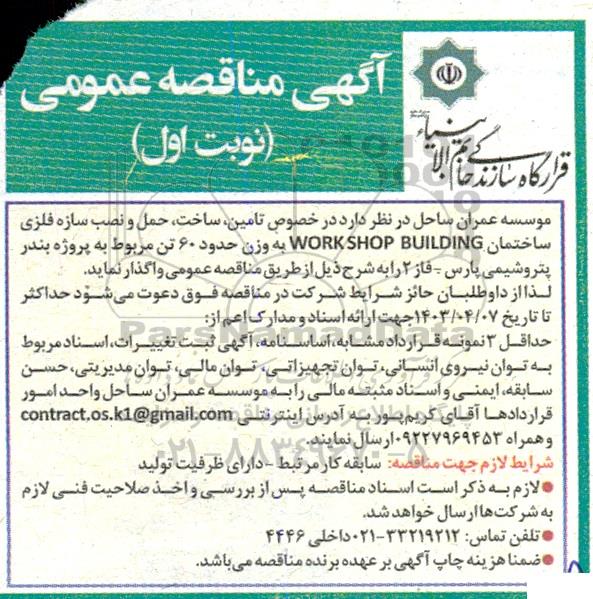 آگهی مناقصه عمومی
(نوبت اول)
قرارگاه سازندگی خاتم الانبیاء
موسسه عمران ساحل در نظر دارد در خصوص تامین، ساخت، حمل و نصب سازه فلزی
ساختمان WORKSHOP BUILDING به وزن حدود ۶۰ تن مربوط به پروژه بندر
پتروشیمی پارس - فاز ۲ را به شرح ذیل از طریق مناقصه عمومی واگذار نماید.
لذا از داوطلبان حائز شرایط شرکت در مناقصه فوق دعوت می شود حداکثر
تا تاریخ ۱۴۰۳/۰۴/۰۷ جهت ارائه اسناد و مدارک اعم از:
حداقل ۳ نمونه قرارداد مشابه، اساسنامه، آگهی ثبت تغییرات، اسناد مربوط
به توان نیروی انسانی، توان تجهیزاتی، توان مالی، توان مدیریتی، حسن
سابقه، ایمنی و اسناد مثبته مالی را به موسسه عمران ساحل واحد امور
قراردادها آقای کریم پور به آدرس اینترنتی contract.os.k1@gmail.com
و همراه ۰۹۲۲۷۹۶۹۴۵۳ ارسال نمایند.
شرایط لازم جهت مناقصه: سابقه کار مرتبط - دارای ظرفیت تولید
●لازم به ذکر است اسناد مناقصه پس از بررسی و اخذ صلاحیت فنی لازم
به شرکت ها ارسال خواهد شد.
●تلفن تماس: ۳۳۲۱۹۲۱۲-۰۲۱ داخلی ۴۴۴۶
●ضمنا هزینه چاپ آگهی بر عهده برنده مناقصه می باشد.
ParsNamadData
۰۲۱-۸۸۳۴۹۶۷۰-۵